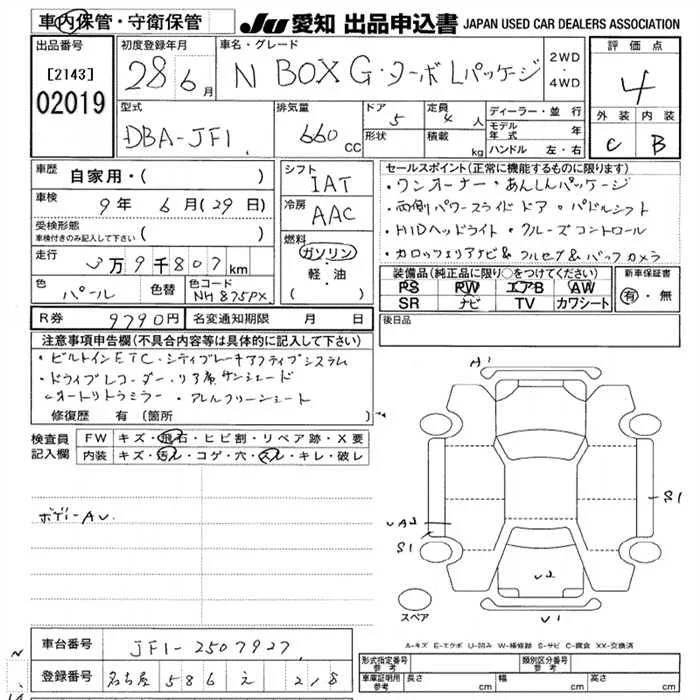 車内保管・守衛保管
JU 愛知 出品申込書 JAPAN USED CAR DEALERS ASSOCIATION
出品番号
[2143]
02019
初度登録年月
28 6月
車名・グレード
N BOX G・ターボLパッケージ
2WD
・
4WD
評価点
4
外装 内装
C B
型式
DBA-JF1
排気量
660 CC
ドア 5
形状
定員 4 人
積載 kg
ディーラー・並行
モデル年式 年
ハンドル 左・右
車歴 自家用・( )
車検 9年 6月(29日)
受検形態
車検付きのみ記入して下さい ( )
走行 3万9千807km
色 パール
色替
色コード NH875PX
シフト IAT
冷房 AAC
燃料
ガソリン
・
軽・油
( )
セールスポイント(正常に機能するものに限ります)
・ワンオーナー・あんしんパッケージ
・両側パワースライドドア・パドルシフト
・HIDヘッドライト・クルーズコントロール
・カロッツェリアナビ&フルセグ&バックカメラ
装備品(純正品に限り○をつけてください)
PS PW エアB AW
SR ナビ TV カワシート
新車保証書
有・無
R券 9790円 名変通知期限 月 日
後日品
注意事項申告欄(不具合内容等は具体的に記入して下さい)
・ビルトインETC・シティブレーキアクティブシステム
・ドライブレコーダー・リア席サンシェード
・オートリトラミラー・アレルフリーシート
修復歴 有(箇所 )
検査員記入欄
FW キズ・飛石・ヒビ割・リペア跡・X要
内装 キズ・汚レ・コゲ・穴・スレ・キレ・破レ
ボデーAU
A1
S1
UA2
S1
U2
U1
スペア
A-キズ E-エクボ U-凹み W-補修跡 S-サビ C-腐食 XX-交換済
車台番号 JF1-2507927
登録番号 名古屋 586 え 218
形式指定番号 参考
類別区分番号 参考
車庫証明用 参考
長さ cm 幅 cm 高さ cm